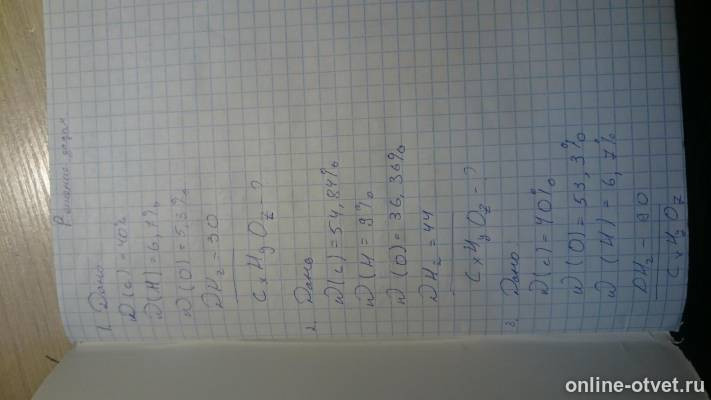 Решение задач
1. Дано
W(C) = 40%
W(H) = 6,7%
W(O) = 53%
DH₂ = 30
CxHyOz - ?
2. Дано
W(C) = 54,84%
W(H = 9%
W(O) = 36,36%
DH₂ = 44
CxHyOz - ?
3. Дано
W(C) = 40%
W(O) = 53,3%
W(H) = 6,7%
DH₂ - 90
CxHyOz
online-otvet.ru